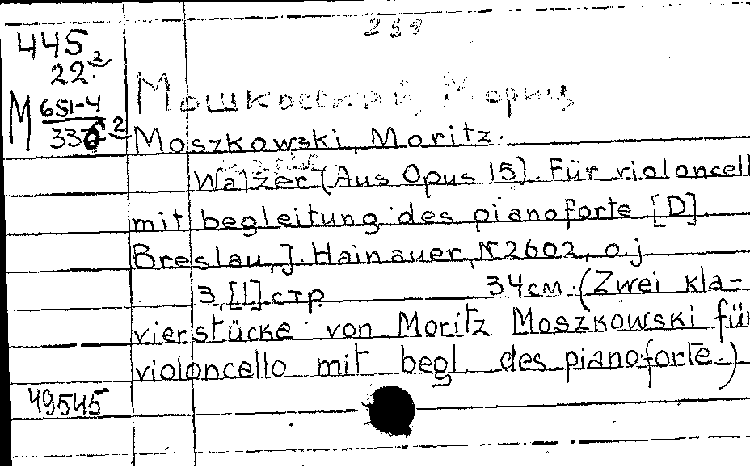 258
445
22.2
M 651-4
336 2
Мошковский, Мориц
Moszkowski, Moritz.
Walzer (Aus Opus 15). Für violoncell
mit begleitung des pianoforte [D]
Breslau, J. Hainauer, № 2602, o.j
3,[1] стр 34 см. (Zwei kla-
vierstücke von Moritz Moszkowski für
violoncello mit begl. des pianoforte.)
49545